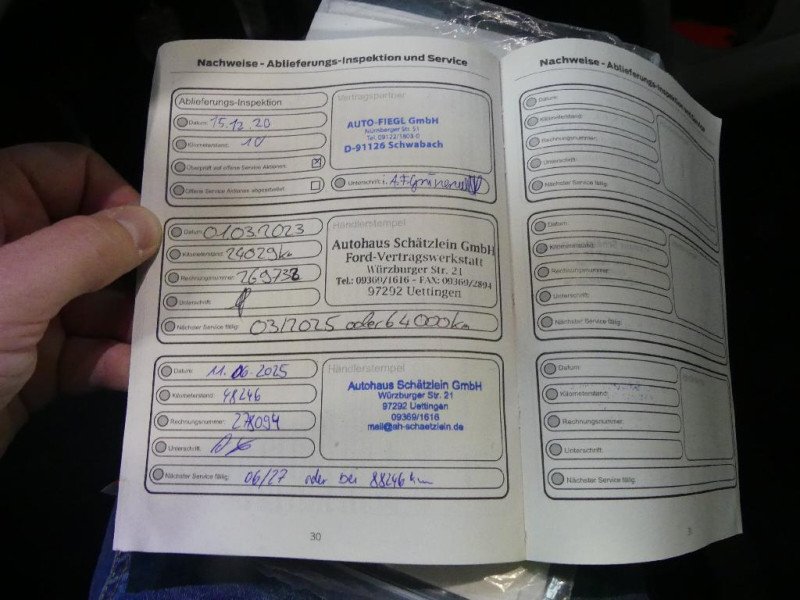 Nachweise - Ablieferungs-Inspektion und Service
Ablieferungs-Inspektion
Datum: 15.12.20
Kilometerstand: 10
Überprüft auf offene Service Aktionen.
Offene Service Aktionen abgearbeitet.
Vertragspartner
AUTO-FIEGL GmbH
Nürnberger Str. 51
Tel. 09122/1803-0
D-91126 Schwabach
Unterschrift:
Datum: 01032023
Kilometerstand: 24029km
Rechnungsnummer: 269738
Unterschrift:
Händlerstempel
Autohaus Schätzlein GmbH
Ford-Vertragswerkstatt
Würzburger Str. 21
Tel.: 09369/1616 - FAX: 09369/2894
97292 Uettingen
Nächster Service fällig: 03/2025 oder 64000km
Datum: 11.06.2025
Kilometerstand: 48246
Rechnungsnummer: 278094
Unterschrift:
Händlerstempel
Autohaus Schätzlein GmbH
Würzburger Str. 21
97292 Uettingen
09369/1616
mail@ah-schaetzlein.de
Nächster Service fällig: 06/27 oder bei 88246 km
30
Nachweise - Ablieferungs-Inspektion und Service
Datum:
Kilometerstand:
Rechnungsnummer:
Unterschrift:
Nächster Service fällig:
Datum:
Kilometerstand:
Rechnungsnummer:
Unterschrift:
Nächster Service fällig:
Datum:
Kilometerstand:
Rechnungsnummer:
Unterschrift:
Nächster Service fällig: